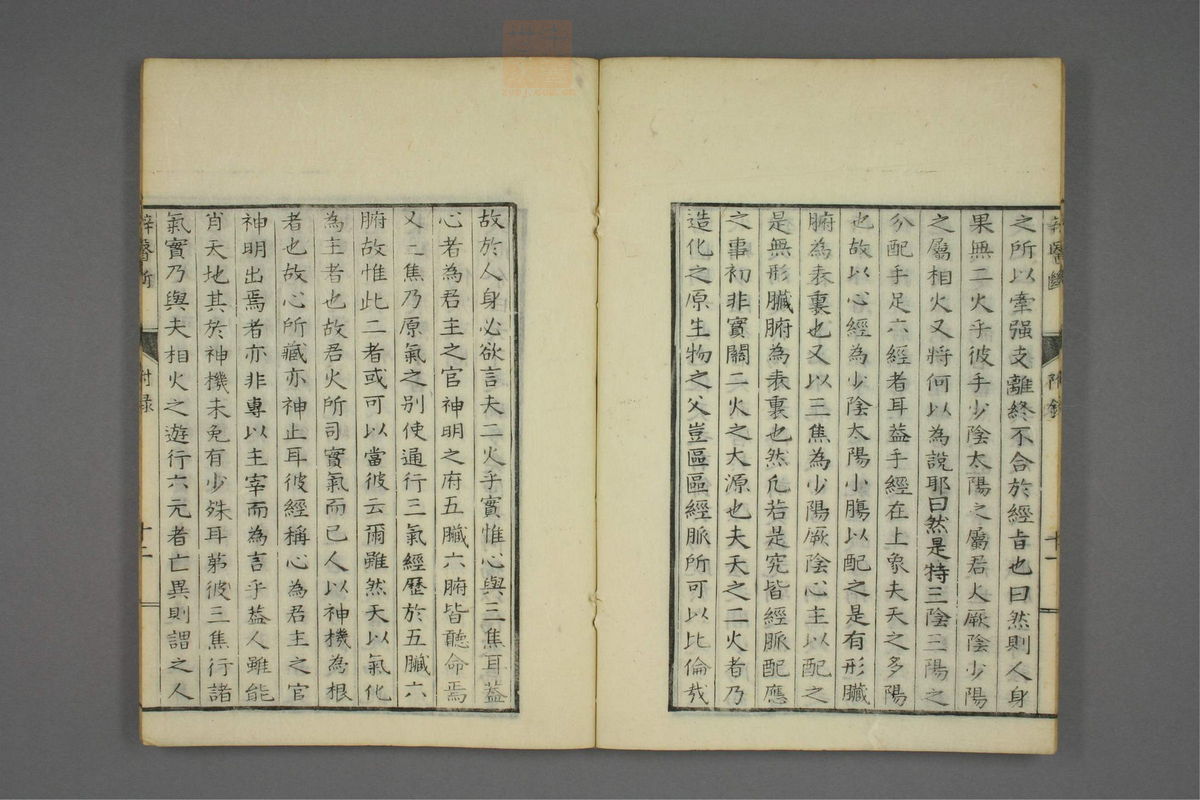 之所以牽强支離終不合於經旨也曰然則人身
果無二火乎彼手少陰太陽之屬君火厥陰少陽
之屬相火又將何以為說耶曰然是特三陰三陽之
分配手足六經者耳蓋手經在上象夫天之多陽
也故以心經為少陰太陽小膓以配之是有形臟
腑為表裏也又以三焦為少陽厥陰心主以配之
是無形臟腑為表裏也然凢若是究皆經脈配應
之事初非實關二火之大源也夫天之二火者乃
造化之原生物之父豈區區經脈所可以比倫㢤
十一
故於人身必欲言夫二火乎實惟心與三焦耳蓋
心者為君主之官神明之府五臟六腑皆聽命焉
又三焦乃原氣之別使通行三氣經歷於五臟六
腑故惟此二者或可以當彼云爾雖然天以氣化
為主者也故君火所司實氣而已人以神機為根
者也故心所藏亦神止耳彼經稱心為君主之官
神明出焉者亦非專以主宰而為言乎蓋人雖能
肖天地其於神機未免有少殊耳苐彼三焦行諸
氣實乃與夫相火之遊行六元者亡異則謂之人
附录
十二